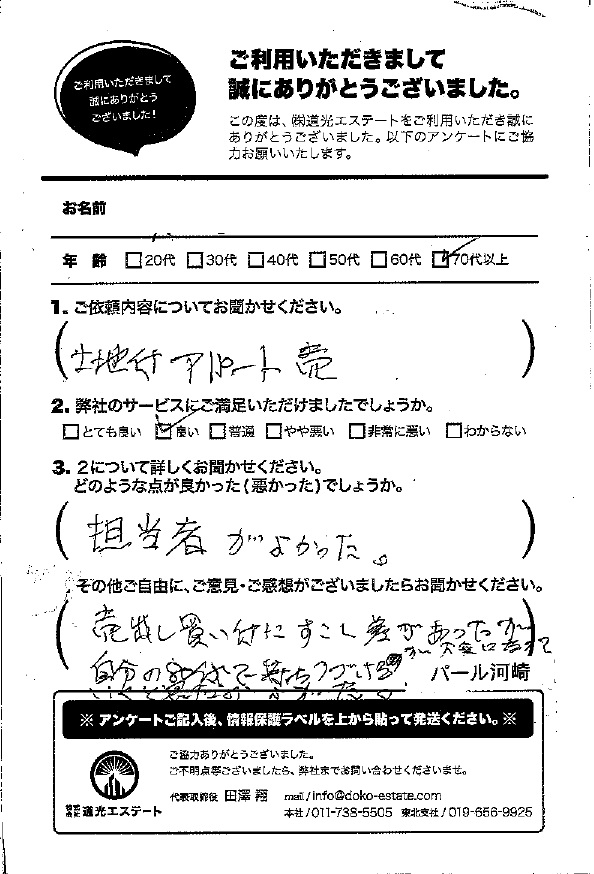 ご利用いただきまして
誠にありがとう
ございました!
ご利用いただきまして
誠にありがとうございました。
この度は、㈱道光エステートをご利用いただき誠に
ありがとうございました。以下のアンケートにご協
力お願いいたします。
お名前
年 齢 20代 30代 40代 50代 60代 70代以上
1. ご依頼内容についてお聞かせください。
土地付アパート売
2. 弊社のサービスにご満足いただけましたでしょうか。
とても良い 良い 普通 やや悪い 非常に悪い わからない
3. 2について詳しくお聞かせください。
どのような点が良かった(悪かった)でしょうか。
担当者がよかった。
その他ご自由に、ご意見・ご感想がございましたらお聞かせください。
売出し買い付にすこし差があったが
自分の
パール河崎
※ アンケートご記入後、情報保護ラベルを上から貼って発送ください。※
ご協力ありがとうございました。
ご不明点等ございましたら、弊社までお問い合わせくださいませ。
代表取締役 田澤 翔 mail/info@doko-estate.com
株式会社 道光エステート 本社/011-738-5505 東北支社/019-656-9925